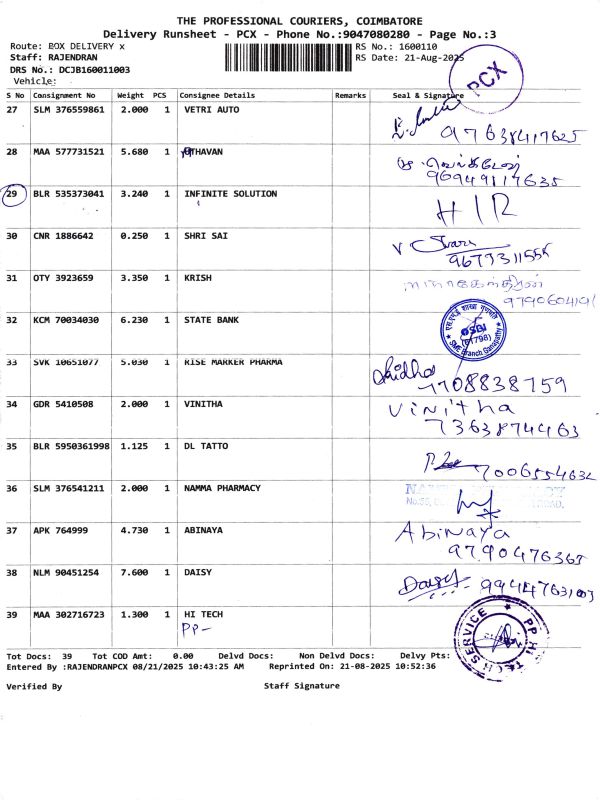 THE PROFESSIONAL COURIERS, COIMBATORE
Delivery Runsheet - PCX - Phone No.:9047080280 - Page No.:3
Route: POX DELIVERY x
RS No.: 1600110
Staff: RAJENDRAN
RS Date: 21-Aug-2025
DRS No.: DCJB160011003
Vehicle:
PCX
S No Consignment No Weight PCS Consignee Details Remarks Seal & Signature
27 SLM 376559861 2.000 1 VETRI AUTO
97638417625
28 MAA 577731521 5.680 1 UTHAVAN
96949117635
29 BLR 535373041 3.240 1 INFINITE SOLUTION
HIR
30 CNR 1886642 0.250 1 SHRI SAI
9679311555
31 OTY 3923659 3.350 1 KRISH
9790604191
32 KCM 70034030 6.230 1 STATE BANK
SBI
(61798)
SME Branch Ganapathy
33 SVK 10651077 5.030 1 RISE MARKER PHARMA
7708838759
34 GDR 5410508 2.000 1 VINITHA Vinitha
7363874463
35 BLR 5950361998 1.125 1 DL TATTO
7006554632
36 SLM 376541211 2.000 1 NAMMA PHARMACY
37 APK 764999 4.730 1 ABINAYA Abinaya
9790476365
38 NLM 90451254 7.600 1 DAISY Daisy 99447631003
39 MAA 302716723 1.300 1 HI TECH
PP-
PP HI TECH SERVICE
Tot Docs: 39 Tot COD Amt: 0.00 Delvd Docs: Non Delvd Docs: Delvy Pts:
Entered By :RAJENDRANPCX 08/21/2025 10:43:25 AM Reprinted On: 21-08-2025 10:52:36
Verified By Staff Signature